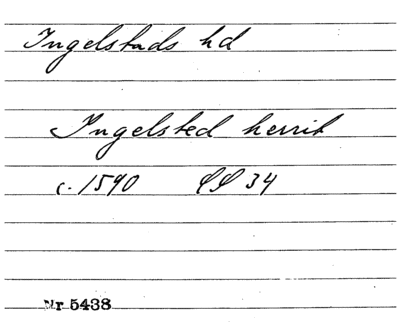 Ingelstads hd
Ingelsted herrit
c. 1590 SS 34
Nr 5438